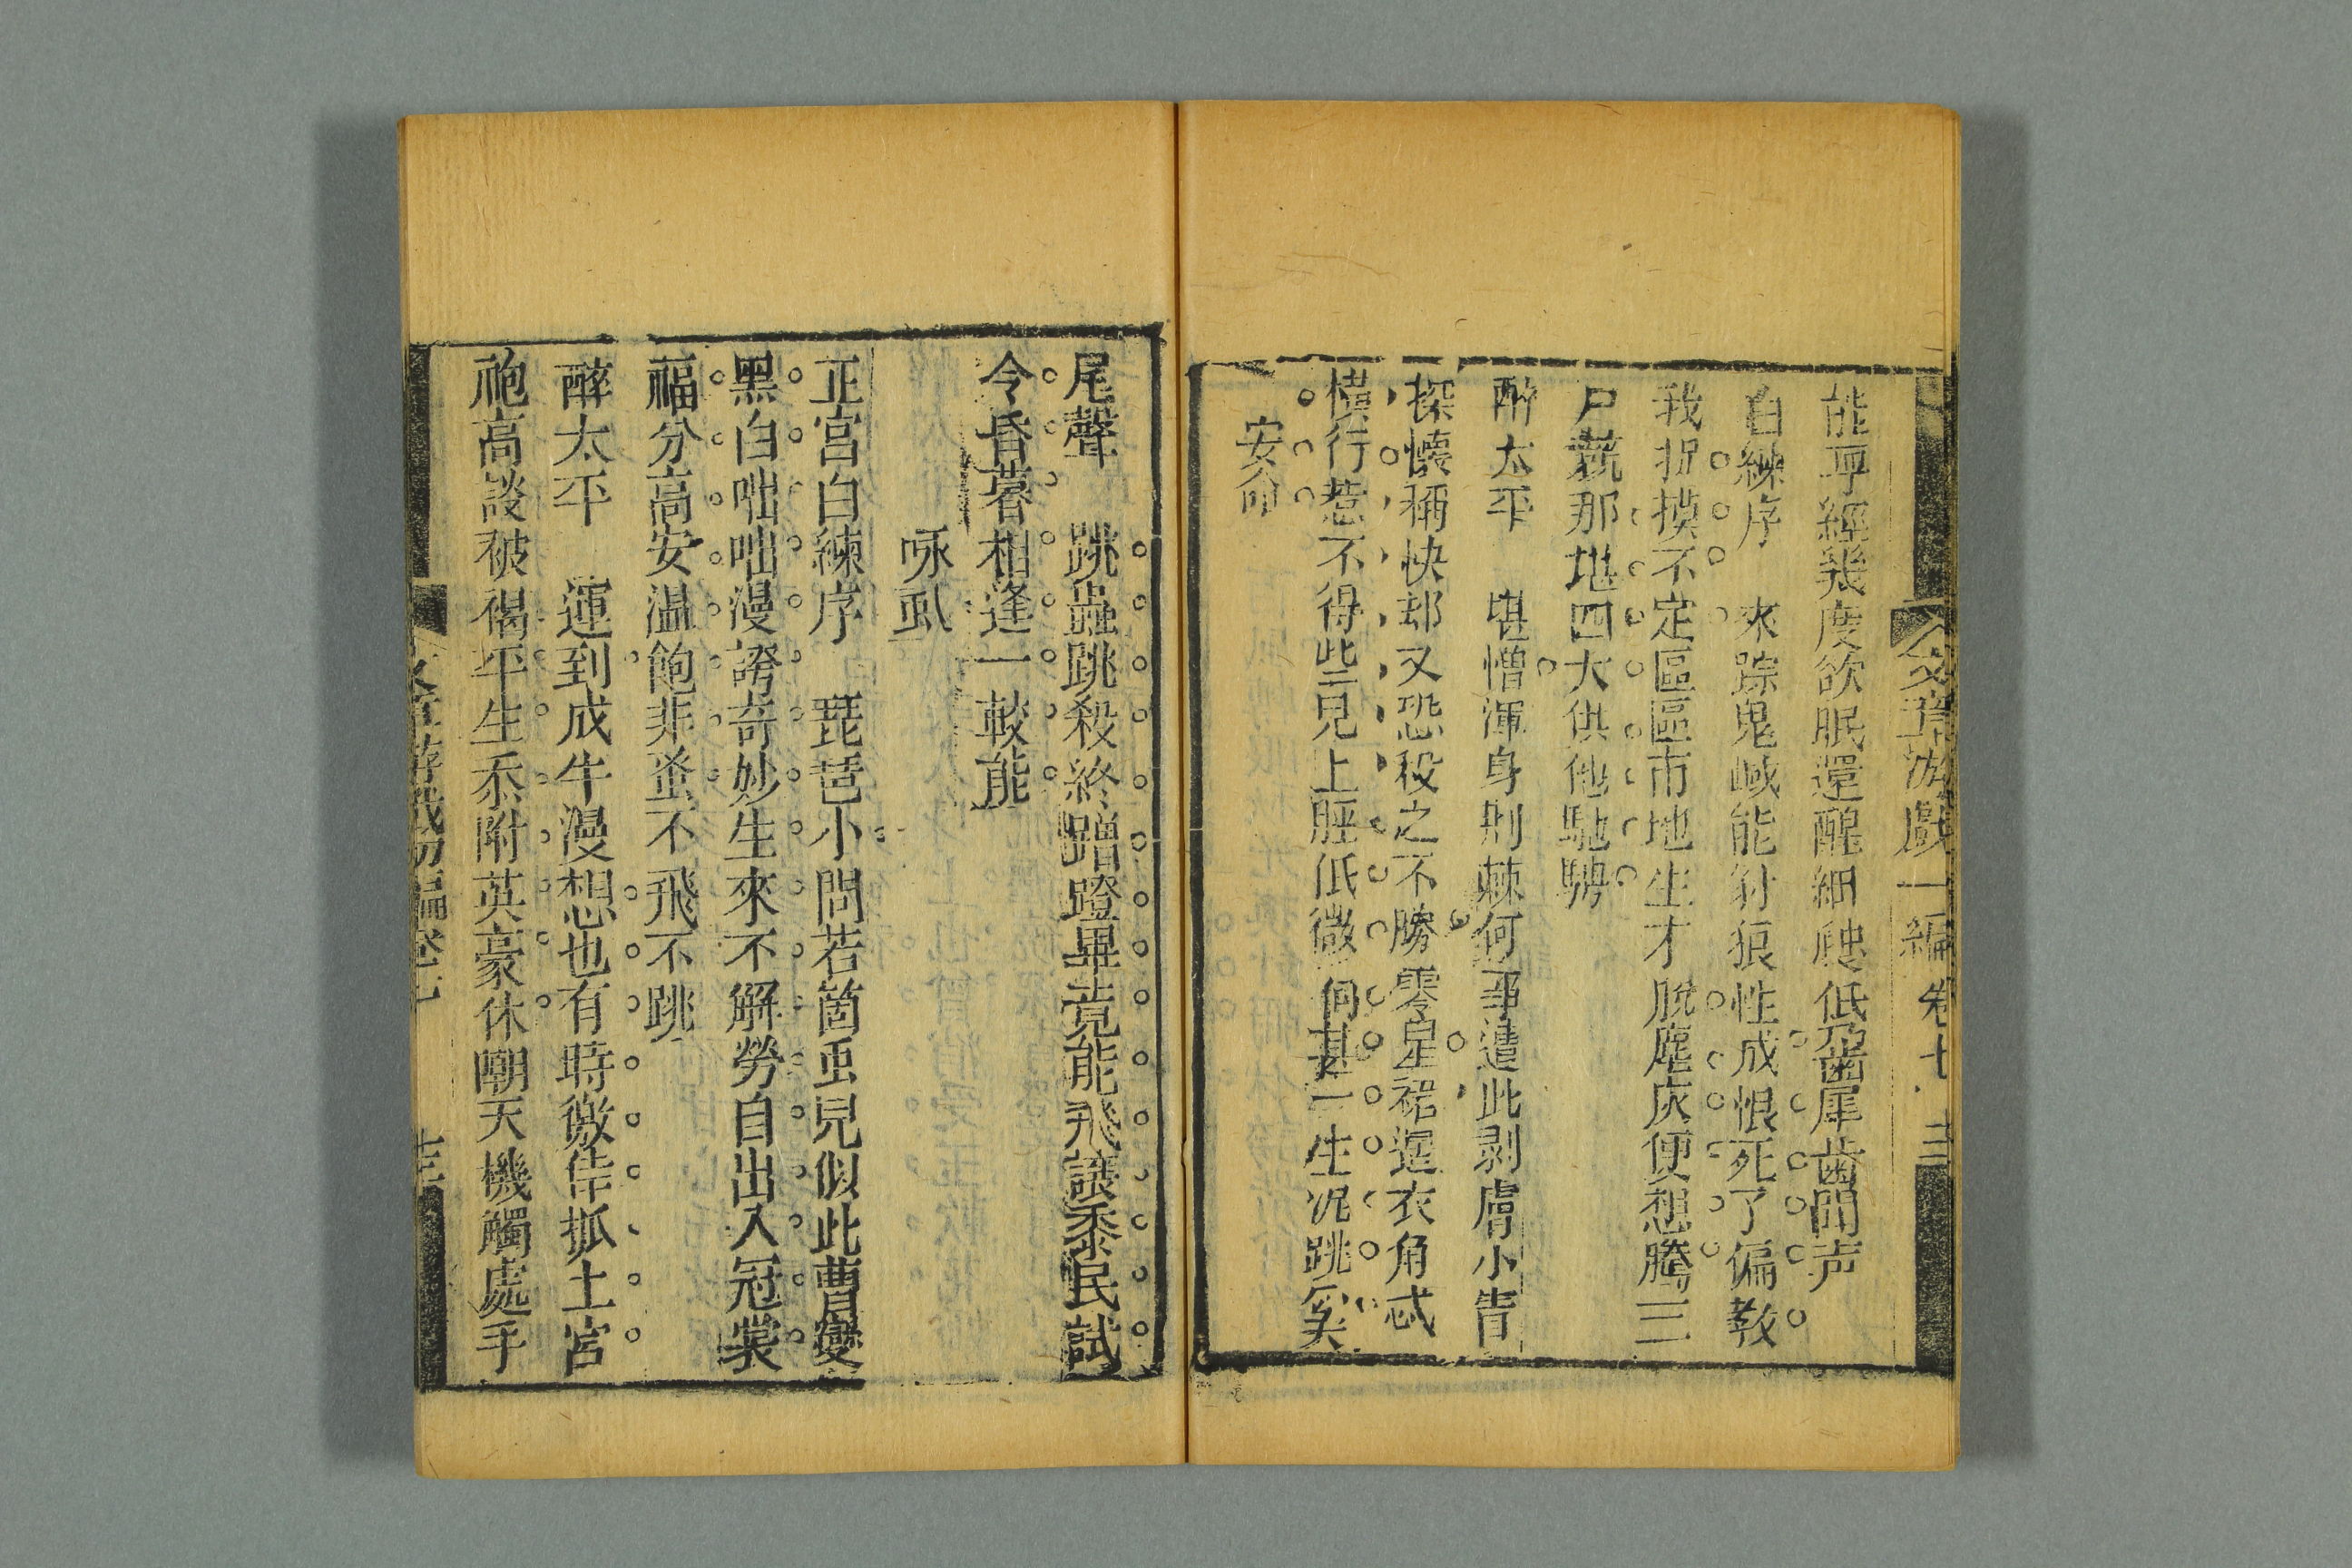 文章游戲一編 卷七 十三
能乎經幾度欲眠還醒細聽低鼾齒犀齒閗声
白練序 來踪鬼蜮能射狠性成恨死了偏教
我捉摸不定區區市地生才脫塵灰便想騰三
尸兢那堪四大供他馳騁
醉太平 堪憎渾身荆棘何事遣此剥膚小眚
探懷稱快却又恐殺之不勝零星裙邊衣角忒
橫行惹不得些兒上脛低微何甚一生泥跳矣
安命
尾聲 跳蟲跳殺終蹭蹬畢竟能飛讓黍民試
令昏暮相逢一較能
咏虱
正宮白練序 琵琶小問若箇蟲兒似此曹變
黑白咄咄漫誇奇妙生來不解勞自出入冠裳
福分高安溫飽非蚤不飛不跳
醉太平 運到成牛漫想也有時徼倖抓土宮
袍高談破褐平生忝附英豪休嘲天機觸處手
文章游戲初編卷七 十三